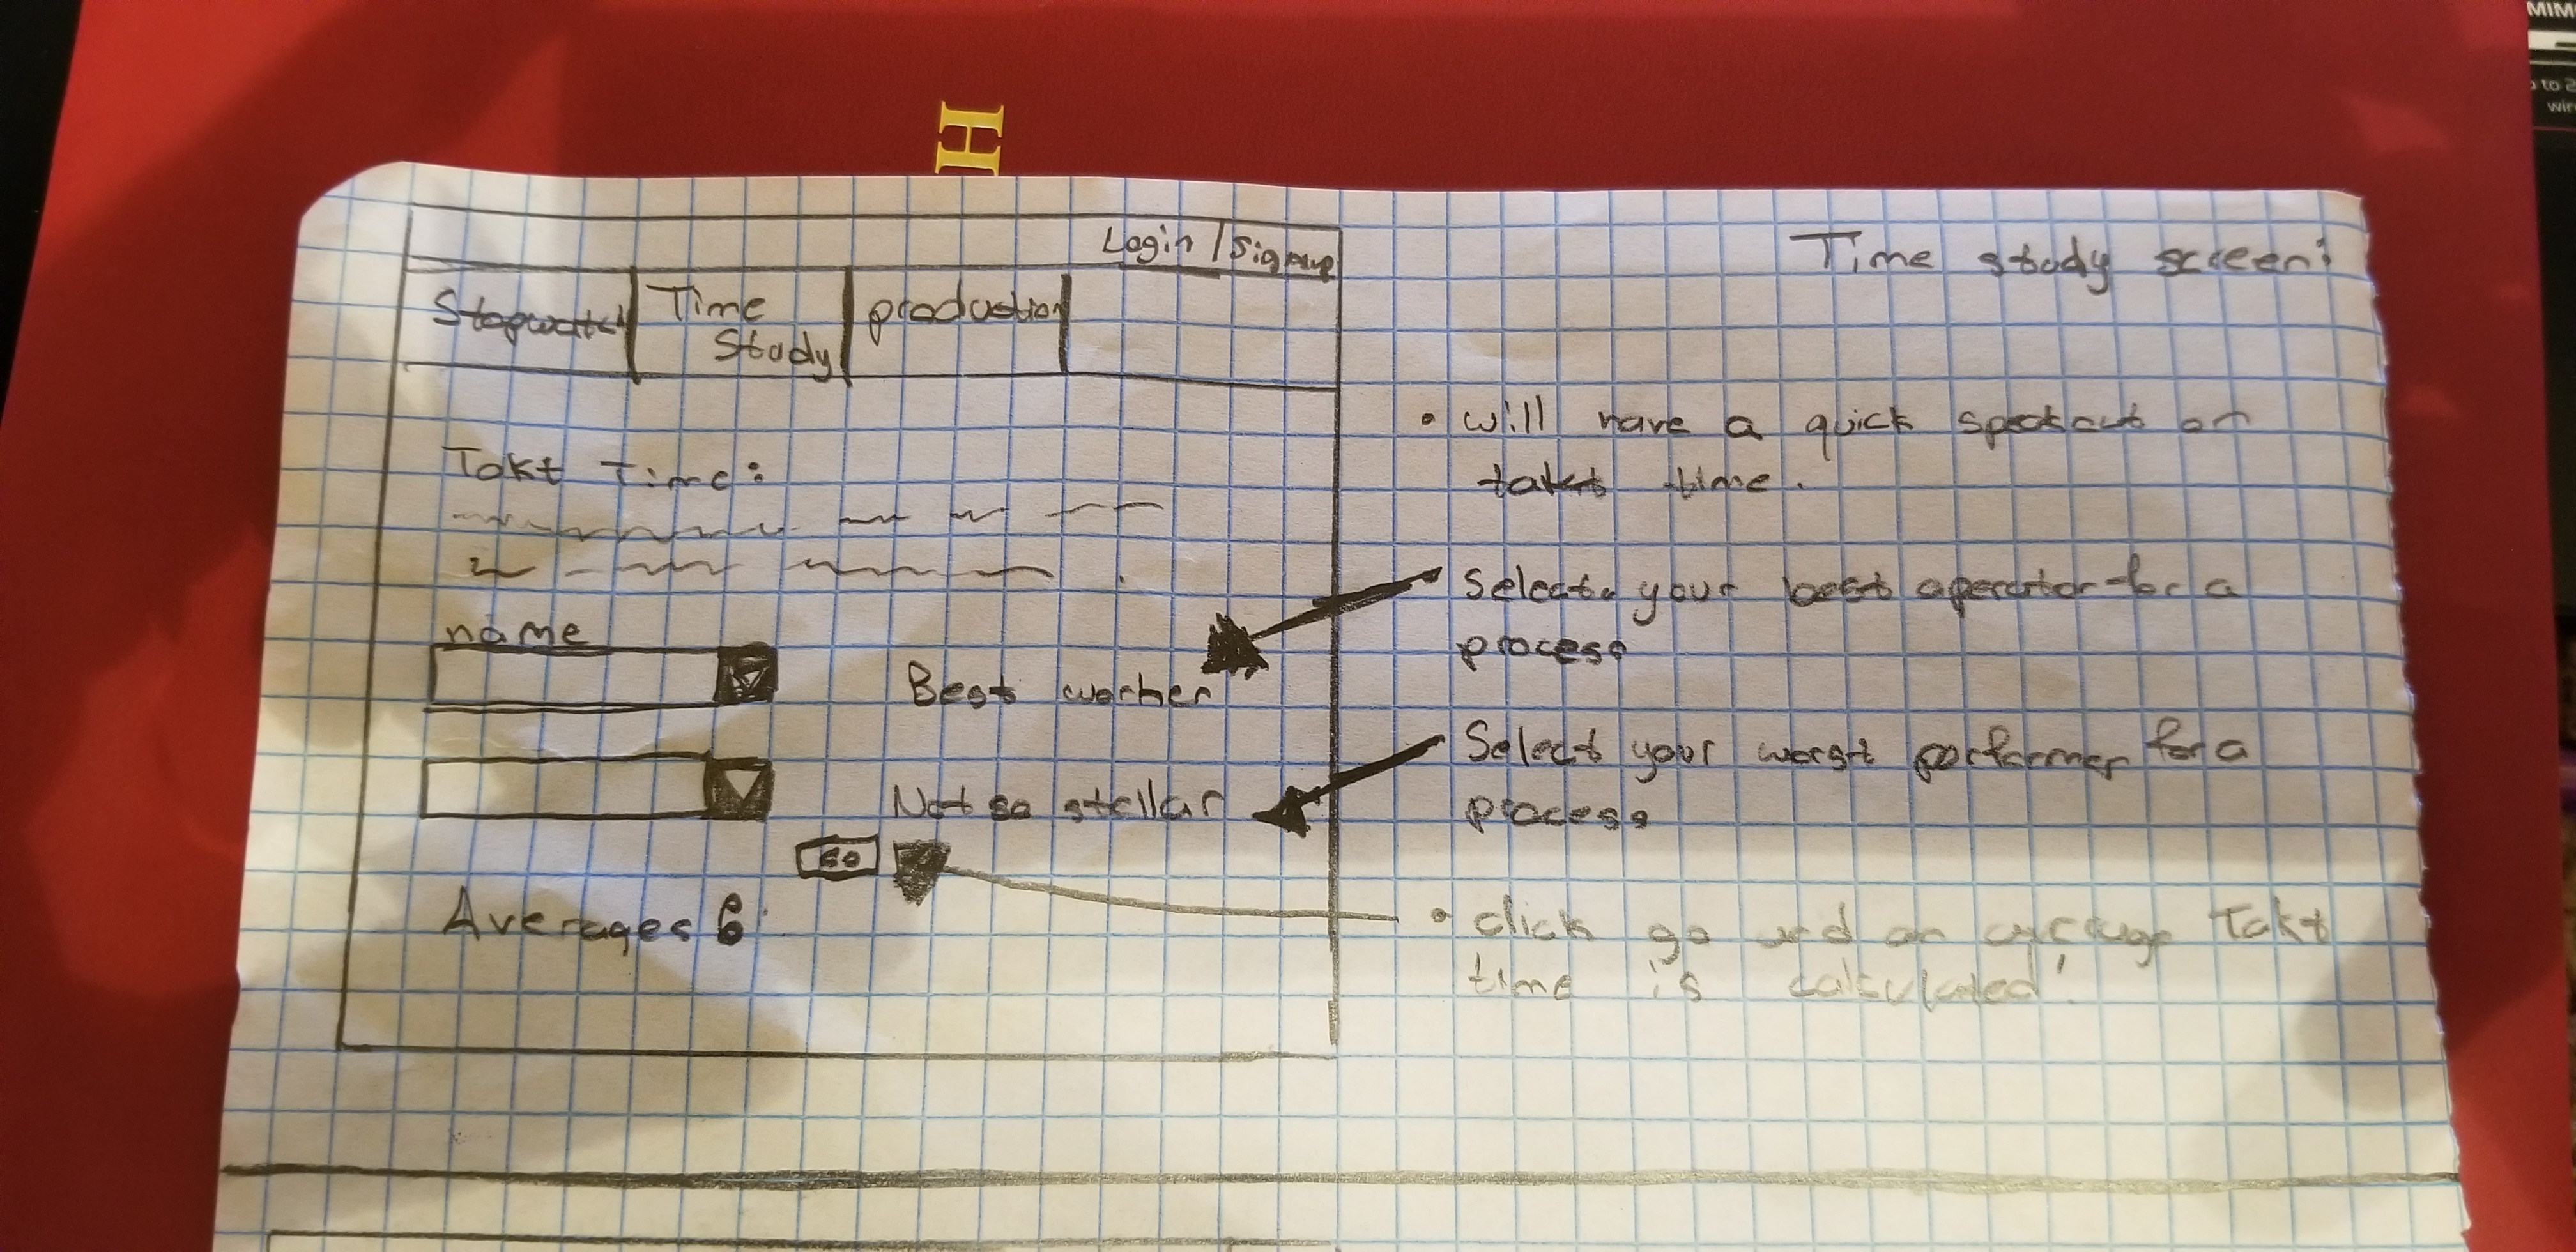 H
MIM
to 2
wir
Login / Signup
Stopwatch
Time
Study
production
Takt Time:
name
Best worker
Not so stellar
Go
Averages:
Time study screen:
• will have a quick on
takt time.
Select your best operator for a
process
Select your worst performer for a
process
• click go and an average Takt
time is calculated!